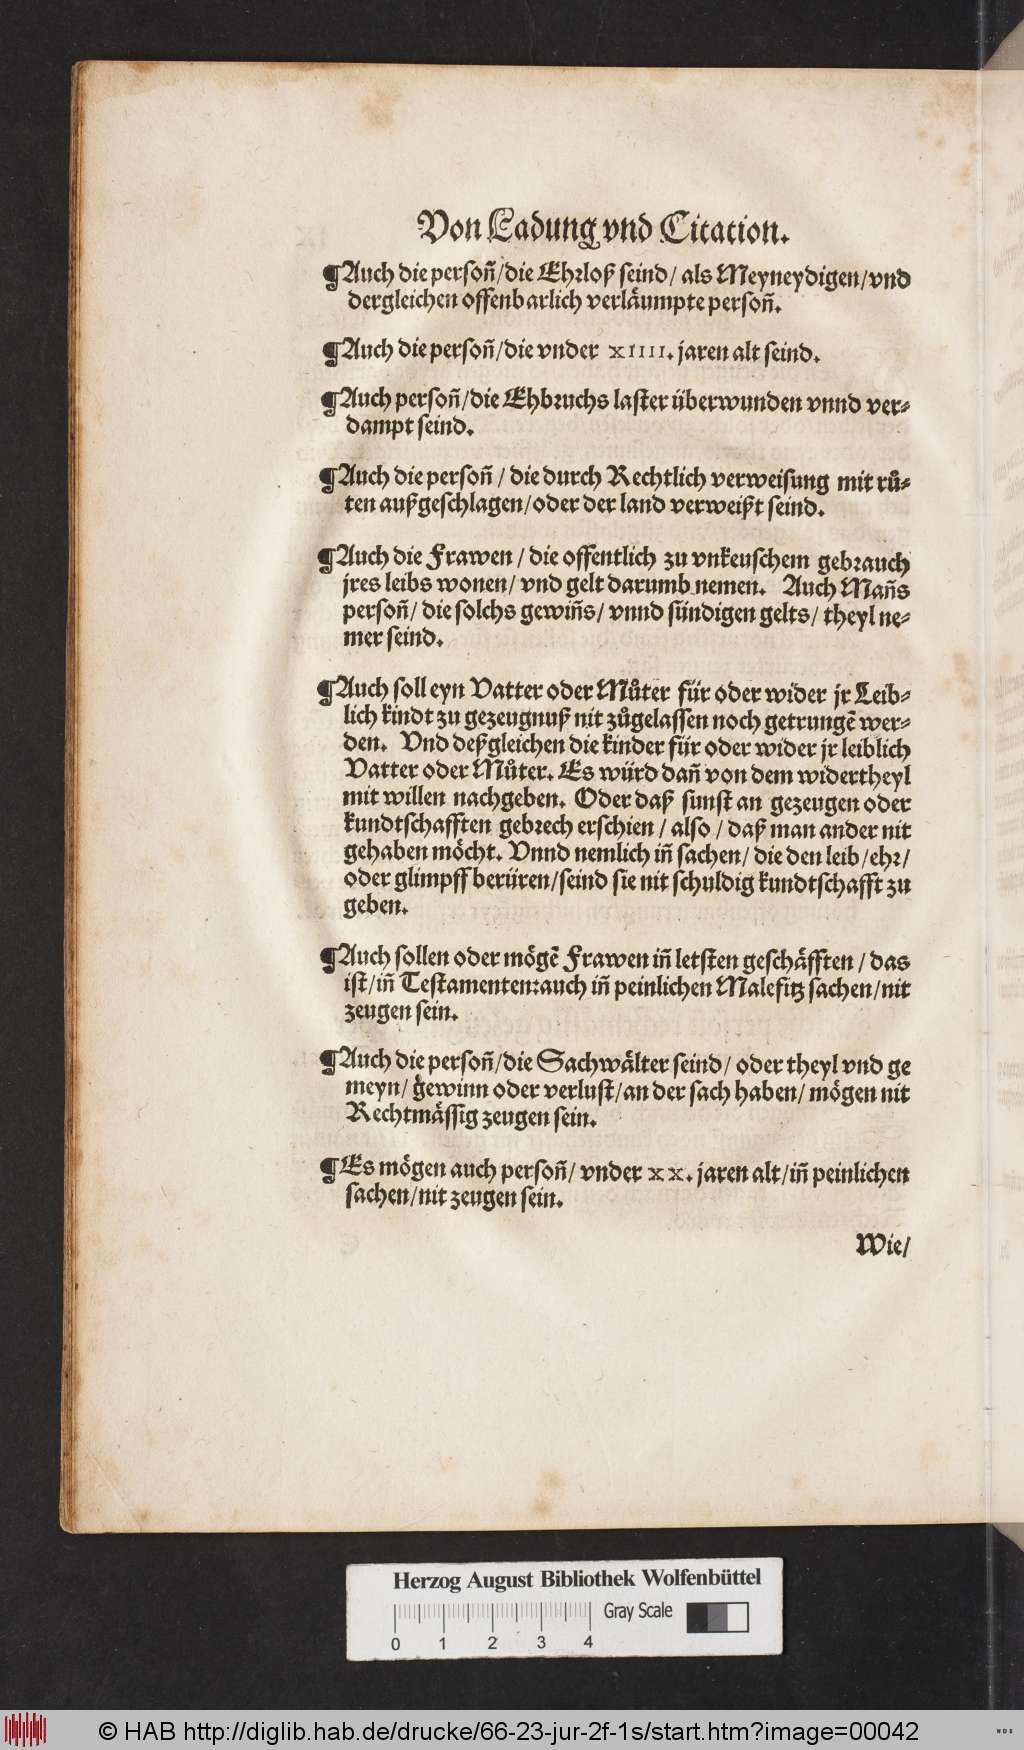 Von Ladung vnd Citation.
¶Auch die persoñ/die Ehrloß seind/ als Meyneydigen/vnd
dergleichen offenbarlich verläumpte persoñ.
¶Auch die persoñ/die vnder XIIII. jaren alt seind.
¶Auch persoñ/die Ehbruchs laster überwunden vnnd ver-
dampt seind.
¶Auch die persoñ / die durch Rechtlich verweisung mit rů-
ten außgeschlagen/oder der land verweißt seind.
¶Auch die Frawen / die offentlich zu vnkeuschem gebrauch
jres leibs wonen/ vnd gelt darumb nemen. Auch Mañs
persoñ/ die solchs gewiñs/ vnnd sündigen gelts/ theyl ne-
mer seind.
¶Auch soll eyn Vatter oder Můter für oder wider jr Leib-
lich kindt zu gezeugnuß nit zůgelassen noch getrungẽ wer-
den. Vnd deßgleichen die kinder für oder wider jr leiblich
Vatter oder Můter. Es würd dañ von dem widertheyl
mit willen nachgeben. Oder daß sunst an gezeugen oder
kundtschafften gebrech erschien / also / daß man ander nit
gehaben möcht. Vnnd nemlich iñ sachen/ die den leib/ehr/
oder glimpff berüren/seind sie nit schuldig kundtschafft zu
geben.
¶Auch sollen oder mögẽ Frawen iñ letsten geschäfften / das
ist/iñ Testamenten:auch iñ peinlichen Malefitz sachen/nit
zeugen sein.
¶Auch die persoñ/die Sachwälter seind/ oder theyl vnd ge
meyn/ gewinn oder verlust/an der sach haben/ mögen nit
Rechtmässig zeugen sein.
¶Es mögen auch persoñ/ vnder XX. jaren alt/iñ peinlichen
sachen/nit zeugen sein.
Wie/
Herzog August Bibliothek Wolfenbüttel
Gray Scale
0 1 2 3 4
© HAB http://diglib.hab.de/drucke/66-23-jur-2f-1s/start.htm?image=00042